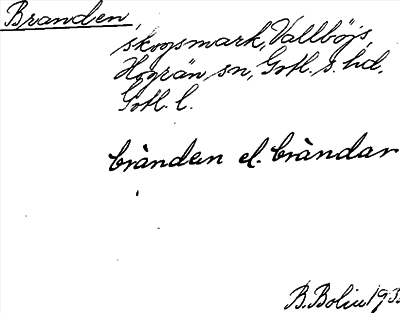 Branden,
skogsmark, Vallböjs,
Hogrän sn, Gotl. s. hd.
Gotl. l.
brànden el. bràndar
B. Bolin 193